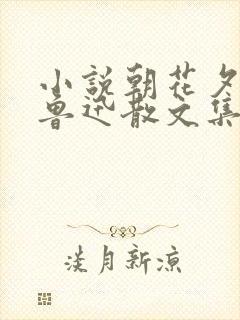 小説朝花夕
魯迅散文集
淡月新涼